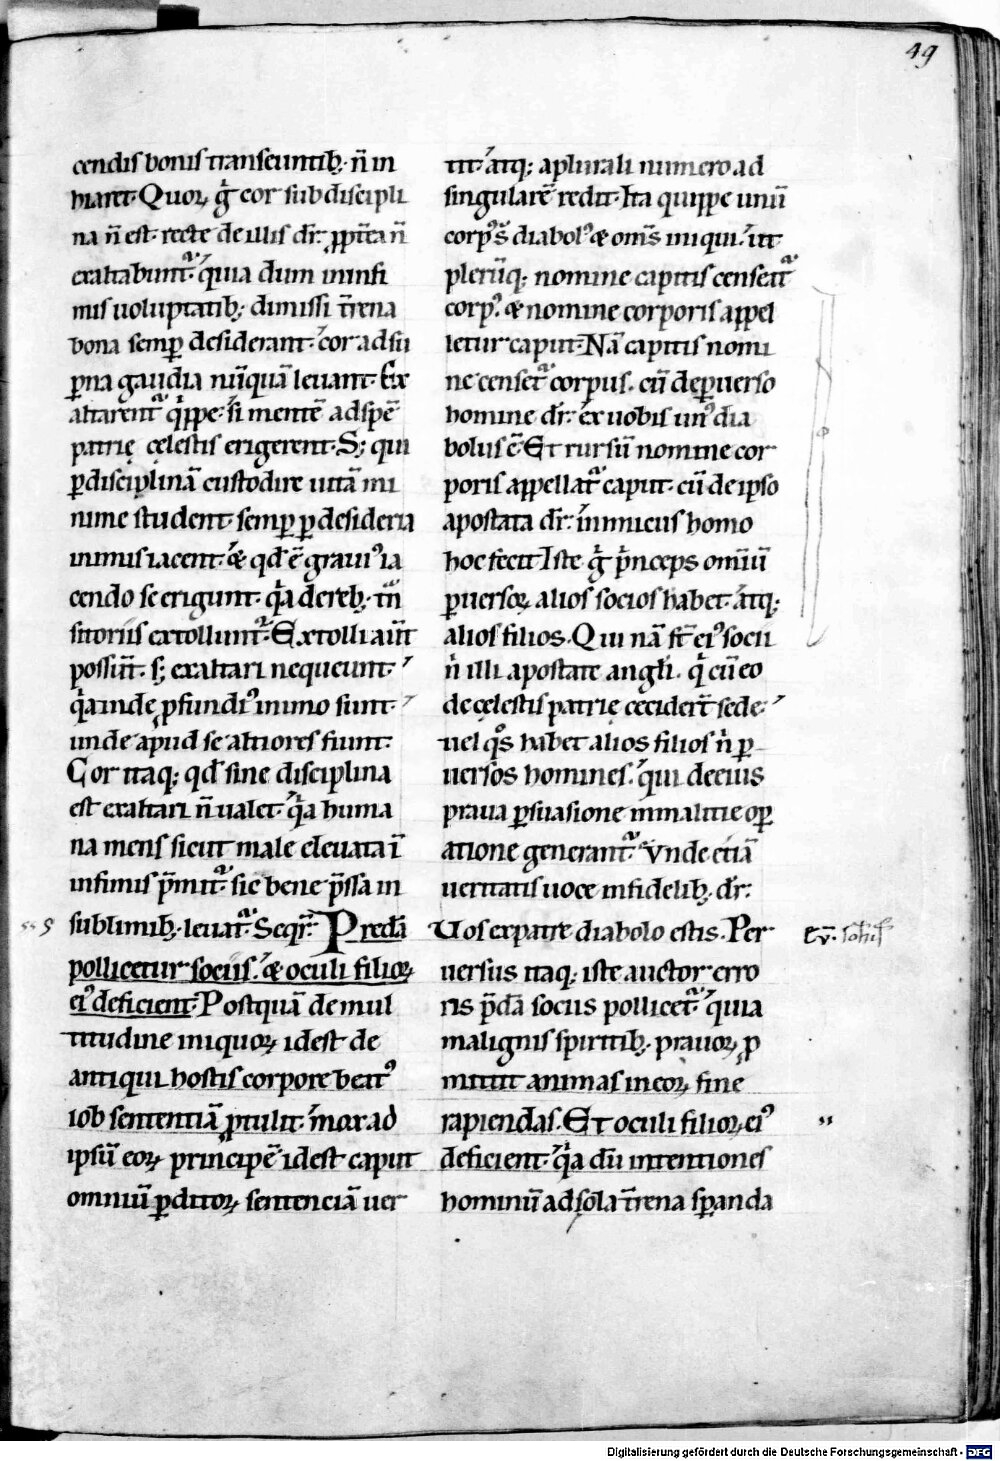 49
cendis bonis transeuntib; n̄ in
hiaret. Quoꝝ g̊ cor sub discipli
na n̄ est. recte de illis dr̄. ꝓpt̄ea n̄
exaltabunt᷑. quia dum in infi
mis uoluptatib; dimissi t̄rena
bona semꝑ desiderant. cor ad su
ꝑna gaudia nūquā leuant. Ex
altarent᷑ qͥppe. si mentē ad spē
patrię cęlestis erigerent. S; qui
ꝑ disciplinā custodire uitā mi
nime student. semꝑ ꝑ desideria
in imis iacent. & qd̄ ē grauiꝰ ia
cendo se erigunt. qͥa de reb; tn̄
sitoriis extollunt᷑. Extolli aūt
possūt. s; exaltari nequeunt.
qͥa inde ꝓfundiꝰ in imo fiunt.
unde apud se altiores fiunt.
Cor itaq; qd̄ sine disciplina
est exaltari n̄ ualet. qͥa huma
na mens sicut male eleuata ī
infimis p̄mit᷑. sic bene p̄ssa in
sublimib; leuat᷑. Seqr̄. Predā
pollicetur sociis. & oculi filioꝝ
eiꝰ deficient. Postquā de mul
titudine iniquoꝝ idest de
antiqui hostis corpore beatꝰ
iob sententiā ꝓtulit. mox ad
ipsū eoꝝ principē idest caput
omniū ꝑditoꝝ sentenciā uer
tit. atq; a plurali numero ad
singularē redit. Ita quippe unū
corpꝰ s̄ diabolꝰ & om̄s iniqui. ut
plerūq; nomine capitis censeat᷑
corpꝰ. & nomine corporis appel
letur caput. Nā capitis nomi
ne censet᷑ corpus. cū de ꝑuerso
homine dr̄. ex uobis unꝰ dia
bolus ē. Et rursū nomine cor
poris appellat᷑ caput. cū de ipso
apostata dr̄. inimicus homo
hoc fecit. Iste g̊ pͥnceps om̄iū
ꝑuersoꝝ alios socios habet. atq;
alios filios. Qui nā s̄t eiꝰ socii
nͥ illi apostate angli. qͥ cū eo
de cęlestis patrię cecider̄t sede.
uel qͦs habet alios filios nͥ ꝑ
uersos homines. qui de eius
praua ꝑsuasione in malitie oꝑ
atione generant᷑. Vnde etiā
ueritatis uoce infidelib; dr̄.
Uos ex patre diabolo estis. Per
uersus itaq; iste auctor erro
ris p̄dā sociis pollicet᷑. quia
malignis spiritib; prauoꝝ ꝓ
mittit animas in eoꝝ fine
rapiendas. Et oculi filioꝝ eiꝰ
deficient. qͥa dū intentiones
hominū ad sola t̄rena sꝑanda
Digitalisierung gefördert durch die Deutsche Forschungsgemeinschaft - DFG